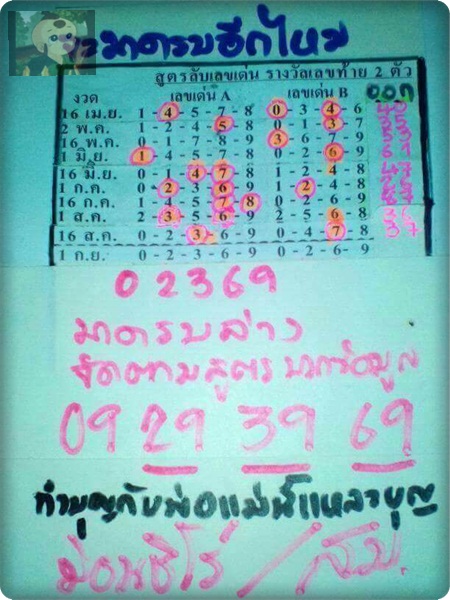 จะมาครบอีกไหม
สูตรลับเลขเด่น รางวัลเลขท้าย 2 ตัว
งวด เลขเด่น A เลขเด่น B ออก
16 เม.ย. 1-4-5-7-8 0-3-4-6 40
2 พ.ค. 1-2-4-5-8 0-1-3-7
16 พ.ค. 0-1-7-8-9 3-6-7-9
1 มิ.ย. 1-4-5-7-8 0-2-6-9 61
16 มิ.ย. 0-1-4-7-8 1-2-4-8 47
1 ก.ค. 0-2-3-6-9 1-2-4-8
16 ก.ค. 1-4-5-7-8 0-2-6-9
1 ส.ค. 2-3-5-6-9 2-5-6-8 36
16 ส.ค. 0-2-3-6-9 0-4-7-8 37
1 ก.ย. 0-2-3-6-9 0-2-6-9
02369
มาครบล่าง
จัดตามสูตร บวกข้อมูล
09 29 39 69
ทำบุญกับพ่อแม่นี่แหละบุญ